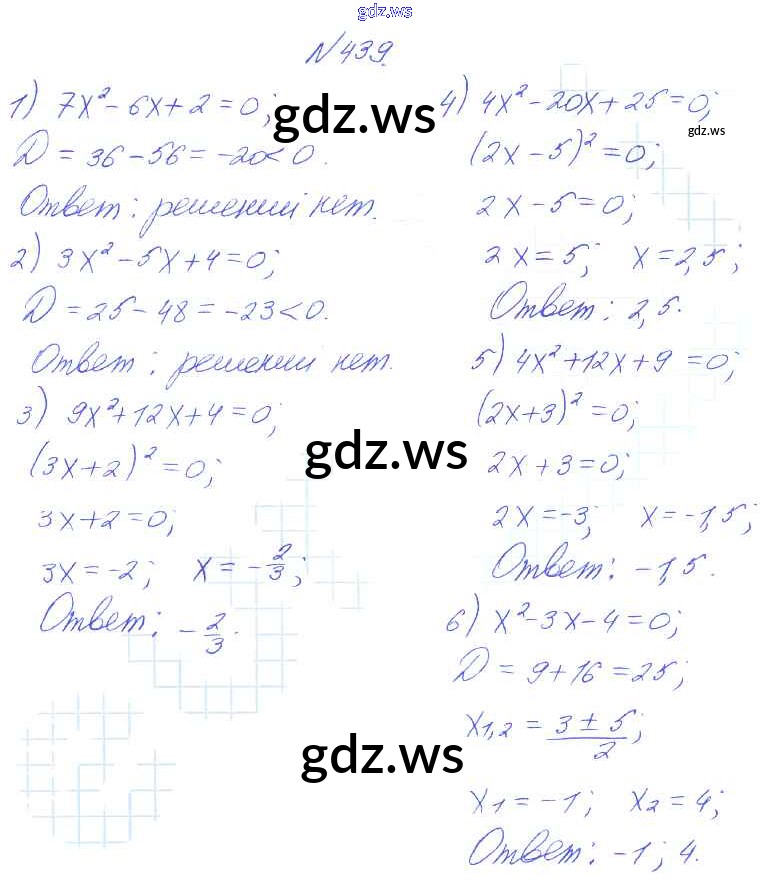 gdz.ws
N439.
1) 7x² - 6x + 2 = 0;
D = 36 - 56 = -20 < 0.
Ответ: решений нет.
2) 3x² - 5x + 4 = 0;
D = 25 - 48 = -23 < 0.
Ответ: решений нет.
3) 9x² + 12x + 4 = 0;
(3x + 2)² = 0;
3x + 2 = 0;
3x = -2; x = -2/3;
Ответ: -2/3.
4) 4x² - 20x + 25 = 0;
(2x - 5)² = 0;
2x - 5 = 0;
2x = 5; x = 2,5;
Ответ: 2,5.
5) 4x² + 12x + 9 = 0;
(2x + 3)² = 0;
2x + 3 = 0;
2x = -3; x = -1,5;
Ответ: -1,5.
6) x² - 3x - 4 = 0;
D = 9 + 16 = 25;
x1,2 = (3 ± 5)/2;
x1 = -1; x2 = 4;
Ответ: -1; 4.
gdz.ws
gdz.ws
gdz.ws
gdz.ws